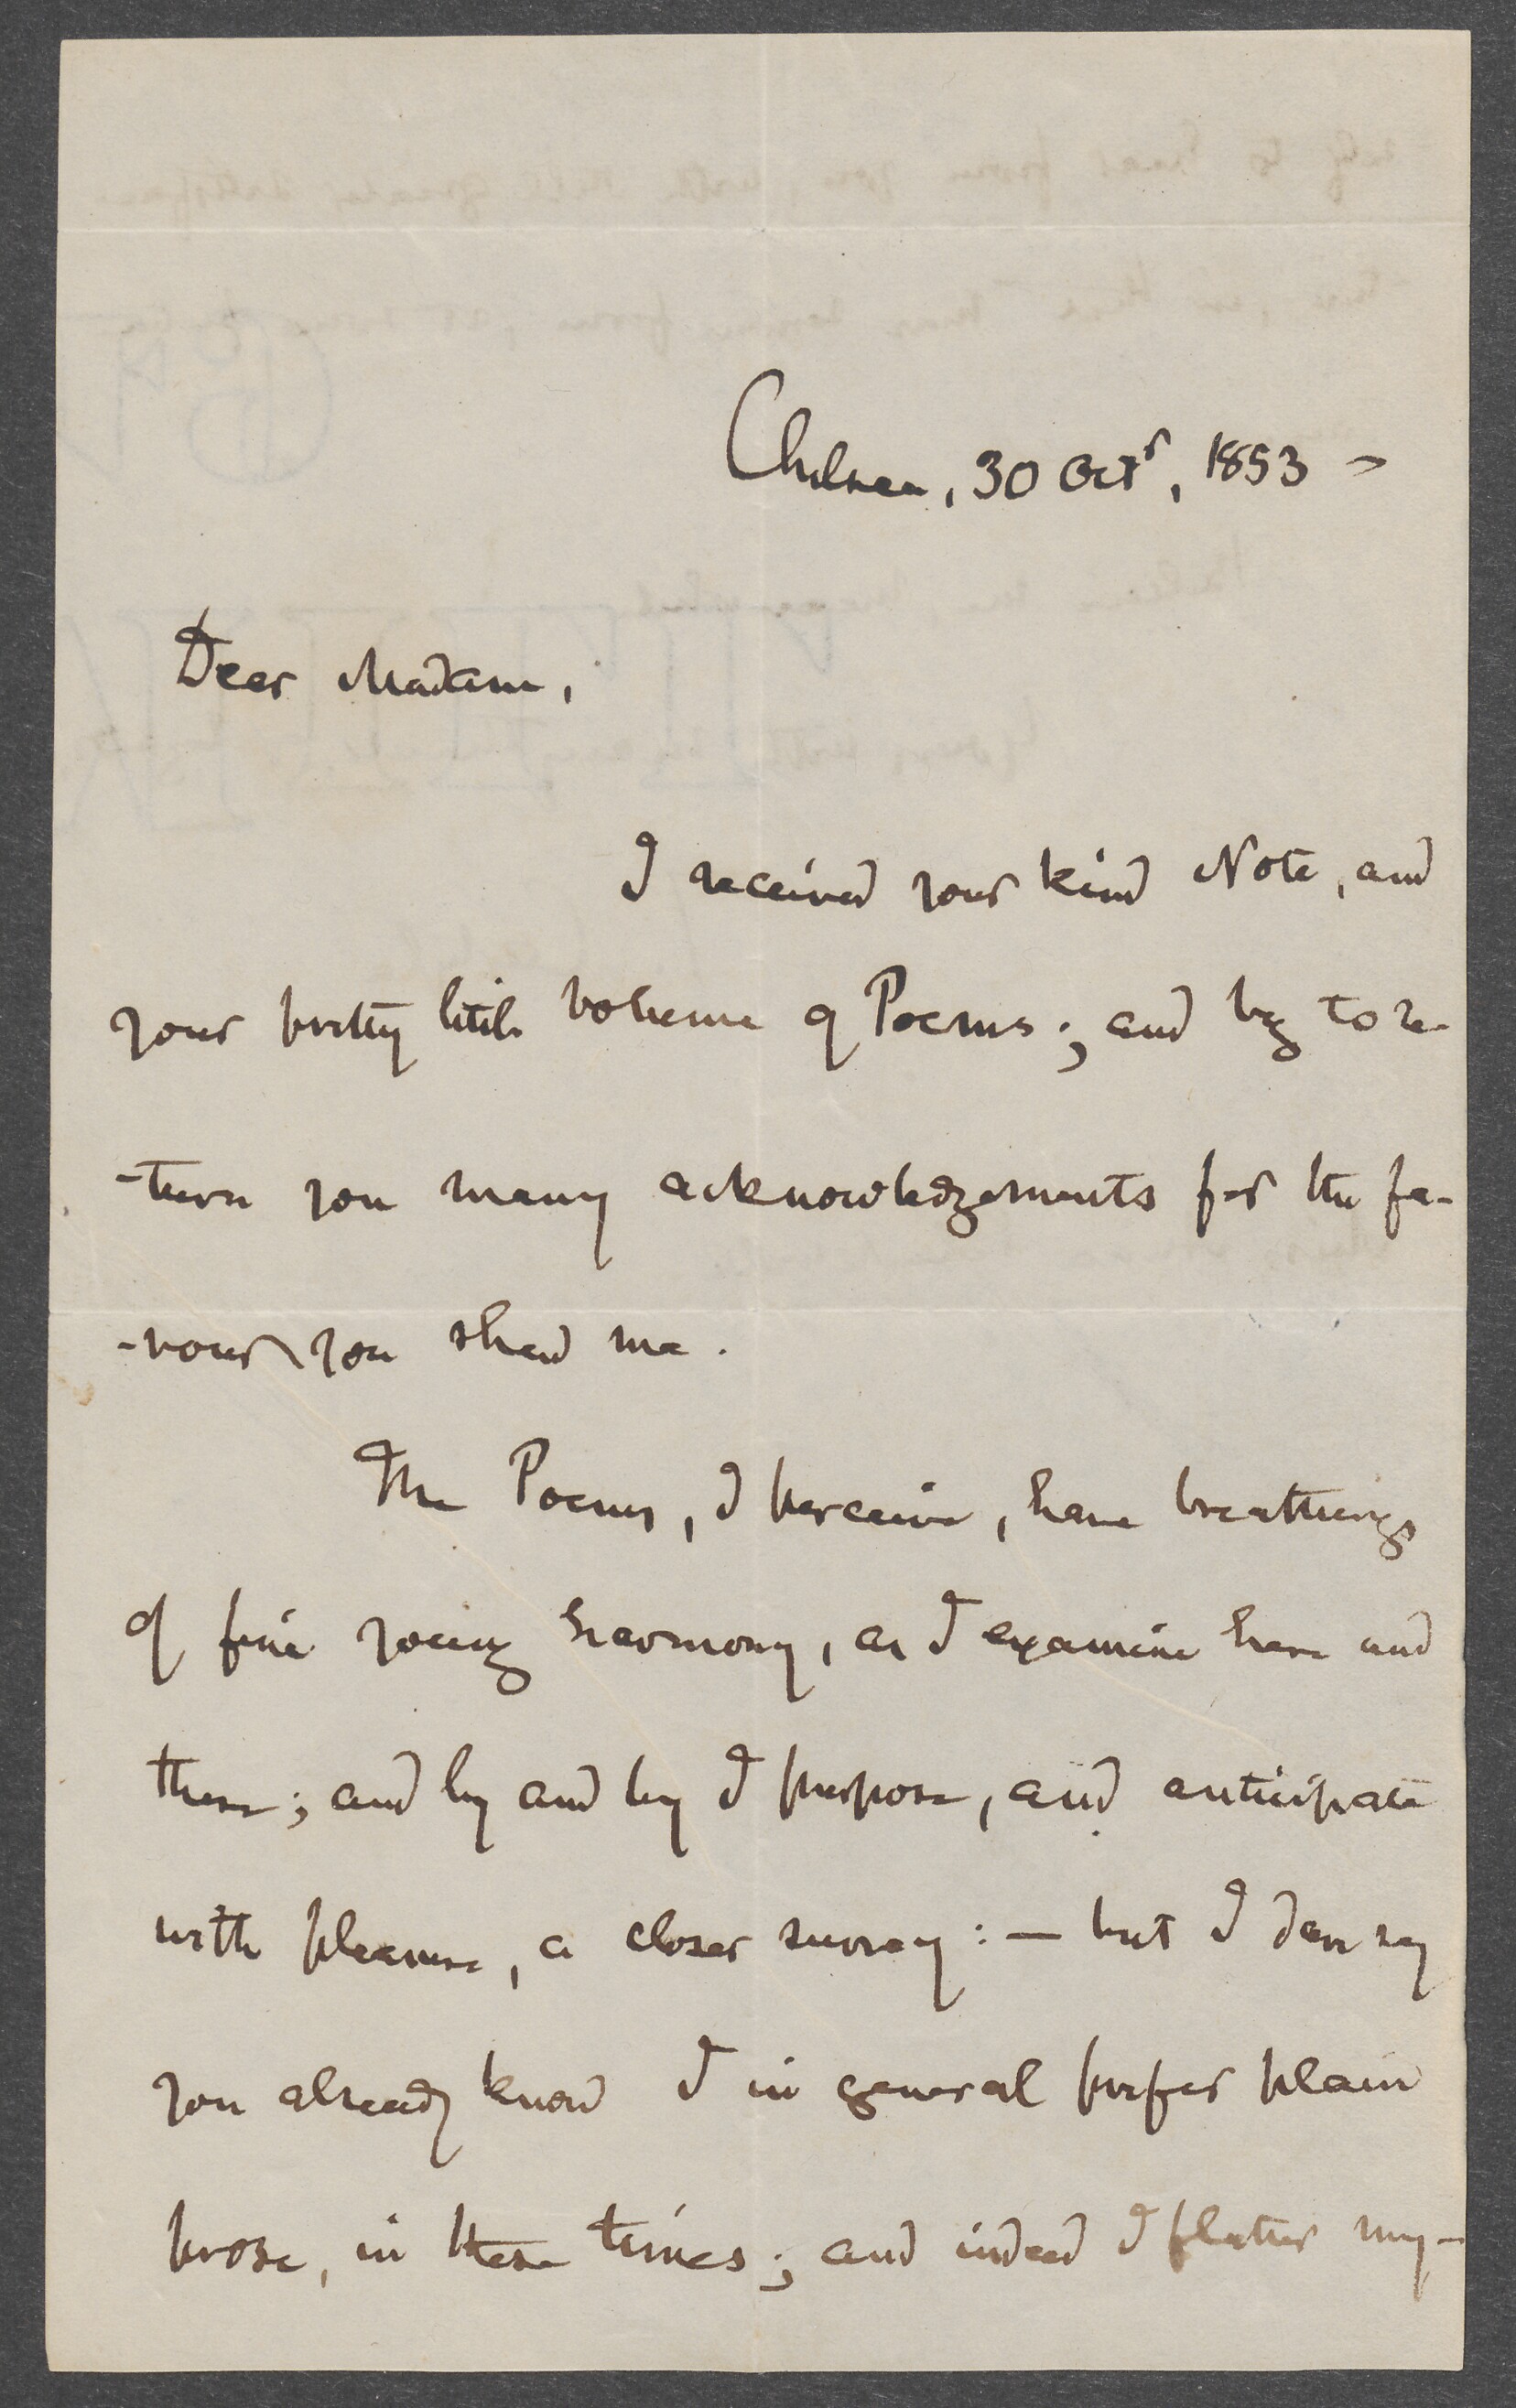 Chelsea, 30 Octr, 1853 -
Dear Madam,
I received your kind Note, and
your pretty little volume of Poems; and beg to re-
-turn you many acknowledgements for the fa-
-vour you shew me.
The Poems, I perceive, have breathings
of fine young harmony, as I examine here and
there; and by and by I purpose, and anticipate
with pleasure, a closer survey: — but I dare say
you already know I in general prefer plain
prose, in these times; and indeed I flatter my-